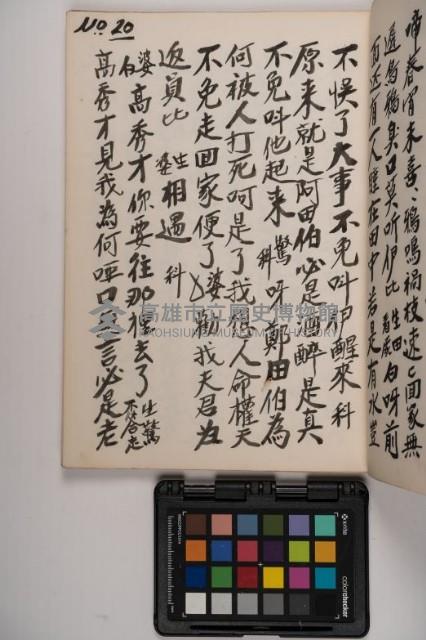 啼春宵未喜、鴉鳴禍枝速〻回家無
還烏鴉臭口莫听伊比 生田看家 白呀前
面还有一人睡在田中若是有水豈
不悞了大事不免叫伊醒來 科
原来就是阿田伯必是酒醉是真
不免叫他起来 驚科 呀鄭田伯為
何被人打死呵是了我 人命權天
不免走回家便了 婆 勸我夫君為
返員比 生婆 相遇 科
婆白 高秀才你要往那裡去了 生驚不答走
高秀才見我為何啞口 言必是老
No 20
高雄市立歷史博物館
KAOHSIUNG MUSEUM OF HISTORY
x-rite
colorchecker